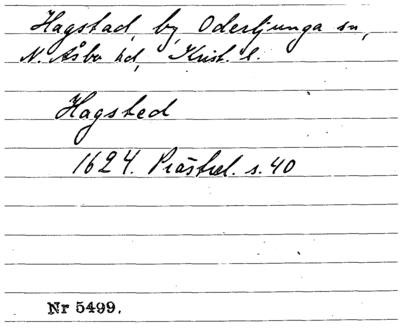 Hagstad, by, Oderljunga sn,
N. Åsbo hd, Krist. l.
Hagsted
1624. Prästrel. s. 40
Nr 5499.